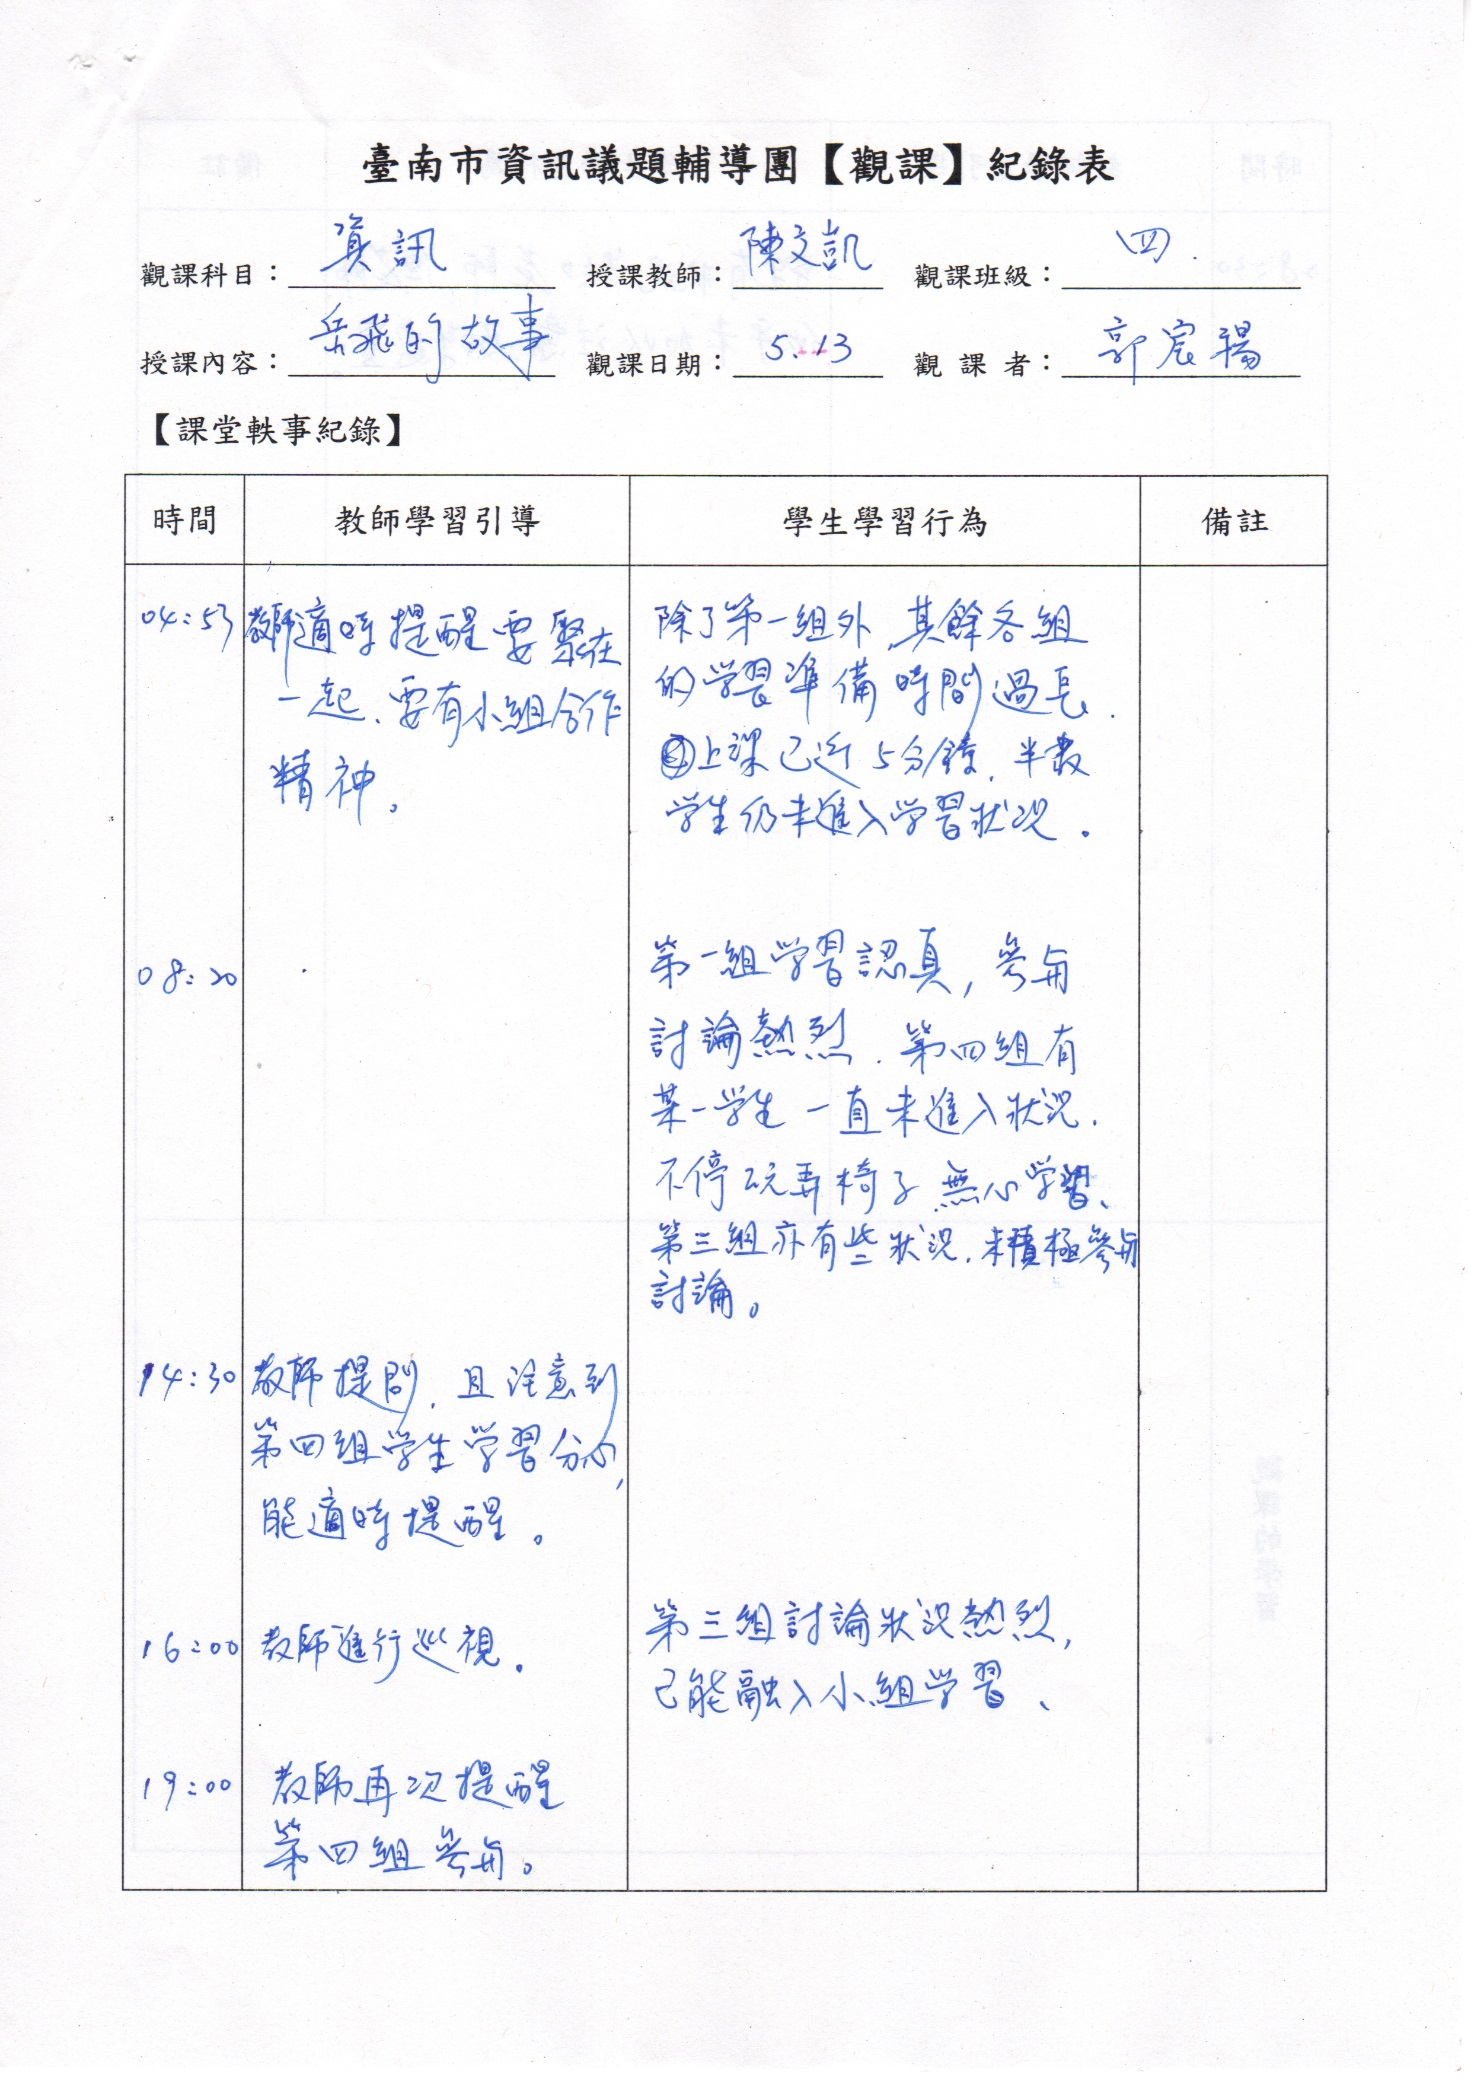 臺南市資訊議題輔導團【觀課】紀錄表
觀課科目：資訊 授課教師：陳文凱 觀課班級：四.
授課內容：岳飛的故事 觀課日期：5.13 觀課者：郭宸禓
【課堂軼事紀錄】
時間 教師學習引導 學生學習行為 備註
04:53 教師適時提醒要聚在
一起、要有小組合作
精神。
除了第一組外,其餘各組
的学習準備時間過長.
上課已近5分鐘,半數
学生仍未進入学習狀況.
08:20
第一組学習認真,參与
討論熱烈.第四組有
某一学生一直未進入狀況.
不停玩弄椅子無心学習、
第三組亦有些狀況.未積極參与
討論。
14:30 教師提問.且注意到
第四組学生学習分心,
能適時提醒。
16:00 教師進行巡視.
第三組討論狀況熱烈,
已能融入小組学習、
19:00 教師再次提醒
第四組參与。